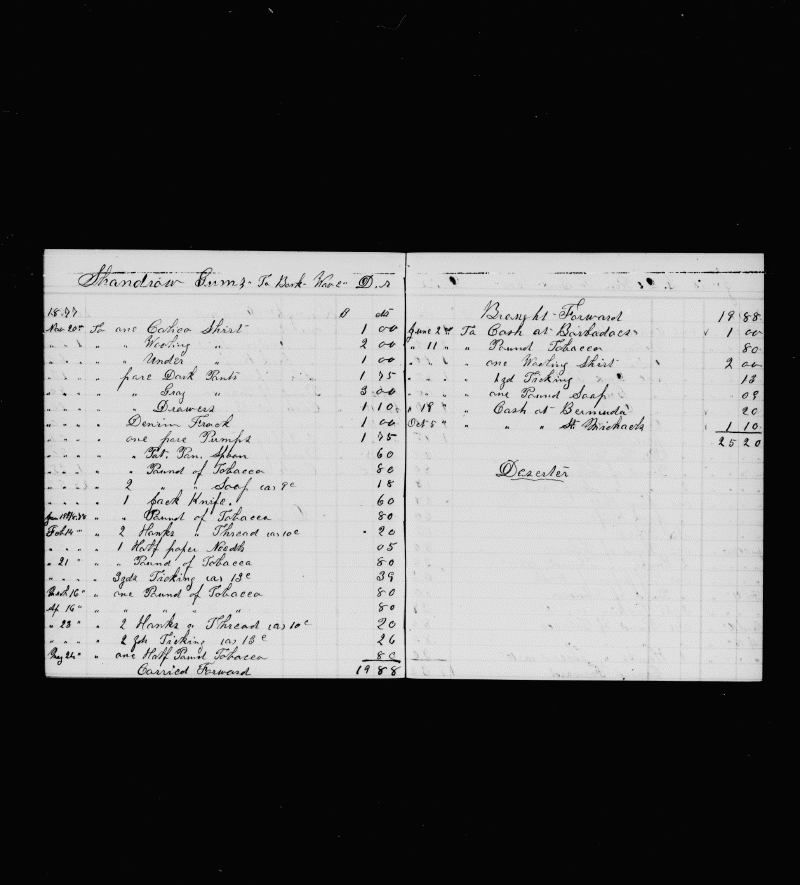 Shandrow Gums " To Bark Wave " D.r
1877 $ cts
Nov 20th To one Calico Shirt 1 00
" " " " " Wooling " 2 00
" " " " " Under " 1 00
" " " " pare Dark Pants 1 75
" " " " " Gray " 3 00
" " " " " Drawers 1 10
" " " " Denim Frock 1 00
" " " " one pare Pumps 1 75
" " " " " Pot. Pan. Spoon 60
" " " " " Pound of Tobacco 80
" " " " 2 " " Soap as 9c 18
" " " " 1 Sack Knife. 60
Jan 1878 " " Pound of Tobacco 80
Feb 14 " " 2 Hanks " Thread as 10c 20
" " " " 1 Half paper Needls 05
" 21 " " " Pound of Tobacco 80
" " " " 3yds Ticking as 13c 39
March 16 " one Pound of Tobacco 80
Ap 16 " " " " " " 80
" 23 " " 2 Hanks " Thread as 10c 20
" " " " 2 yds Ticking as 13c 26
May 24 " " one Half Pound Tobacco 80
Carried Forward 19 88
Braught Forward 19 88
June 2nd To Cash at Barbadaes 1 00
" 11 " " Pound Tobacco 80
" " " " one Wooling Shirt 2 00
" " " " 1yd Ticking 13
" " " " one Pound Soap 09
" 19 " " Cash at Bermuda 20
Oct 5 " " " " St Michaels 1 10
25 20
Deserter